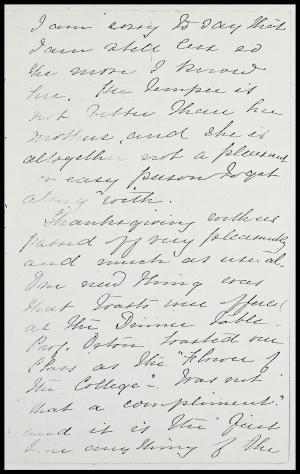 I am sorry to say that
I am still less so
the more I know
her. Her temper is
not better than her
mother's, and she is
altogether not a pleasant
or easy person to get
along with.
Thanksgiving with us
passed off very pleasantly
and much as usual.
One new thing was
that toasts were offered
at the Dinner table.
Prof. Orton toasted our
Class as the "Flower of
the College". Was not
that a compliment?
and it is the first
time anything of the